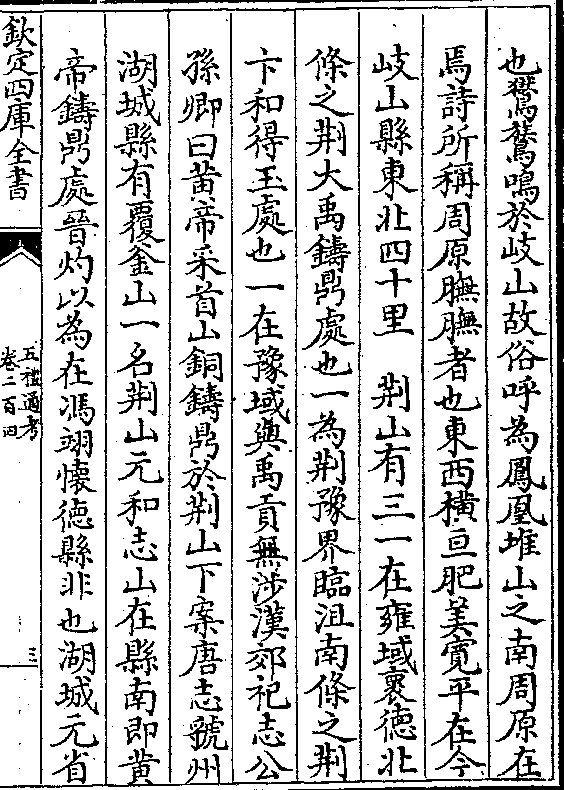 也鸑鷟鳴於岐山故俗呼為鳳凰堆山之南周原在
焉詩所稱周原膴膴者也東西横亘肥美寛平在今
岐山縣東北四十里　荆山有三一在雍域襄徳北
條之荆大禹鑄鼎處也一為荆豫界臨沮南條之荆
卞和得玉處也一在豫域與禹貢無涉漢郊祀志公
孫卿曰黄帝采首山銅鑄鼎於荆山下案唐志虢州
湖城縣有覆釡山一名荆山元和志山在縣南即黄
帝鑄鼎處晉灼以為在馮翊懐徳縣非也湖城元省
欽定四庫全書
五禮通考
卷二百四
三